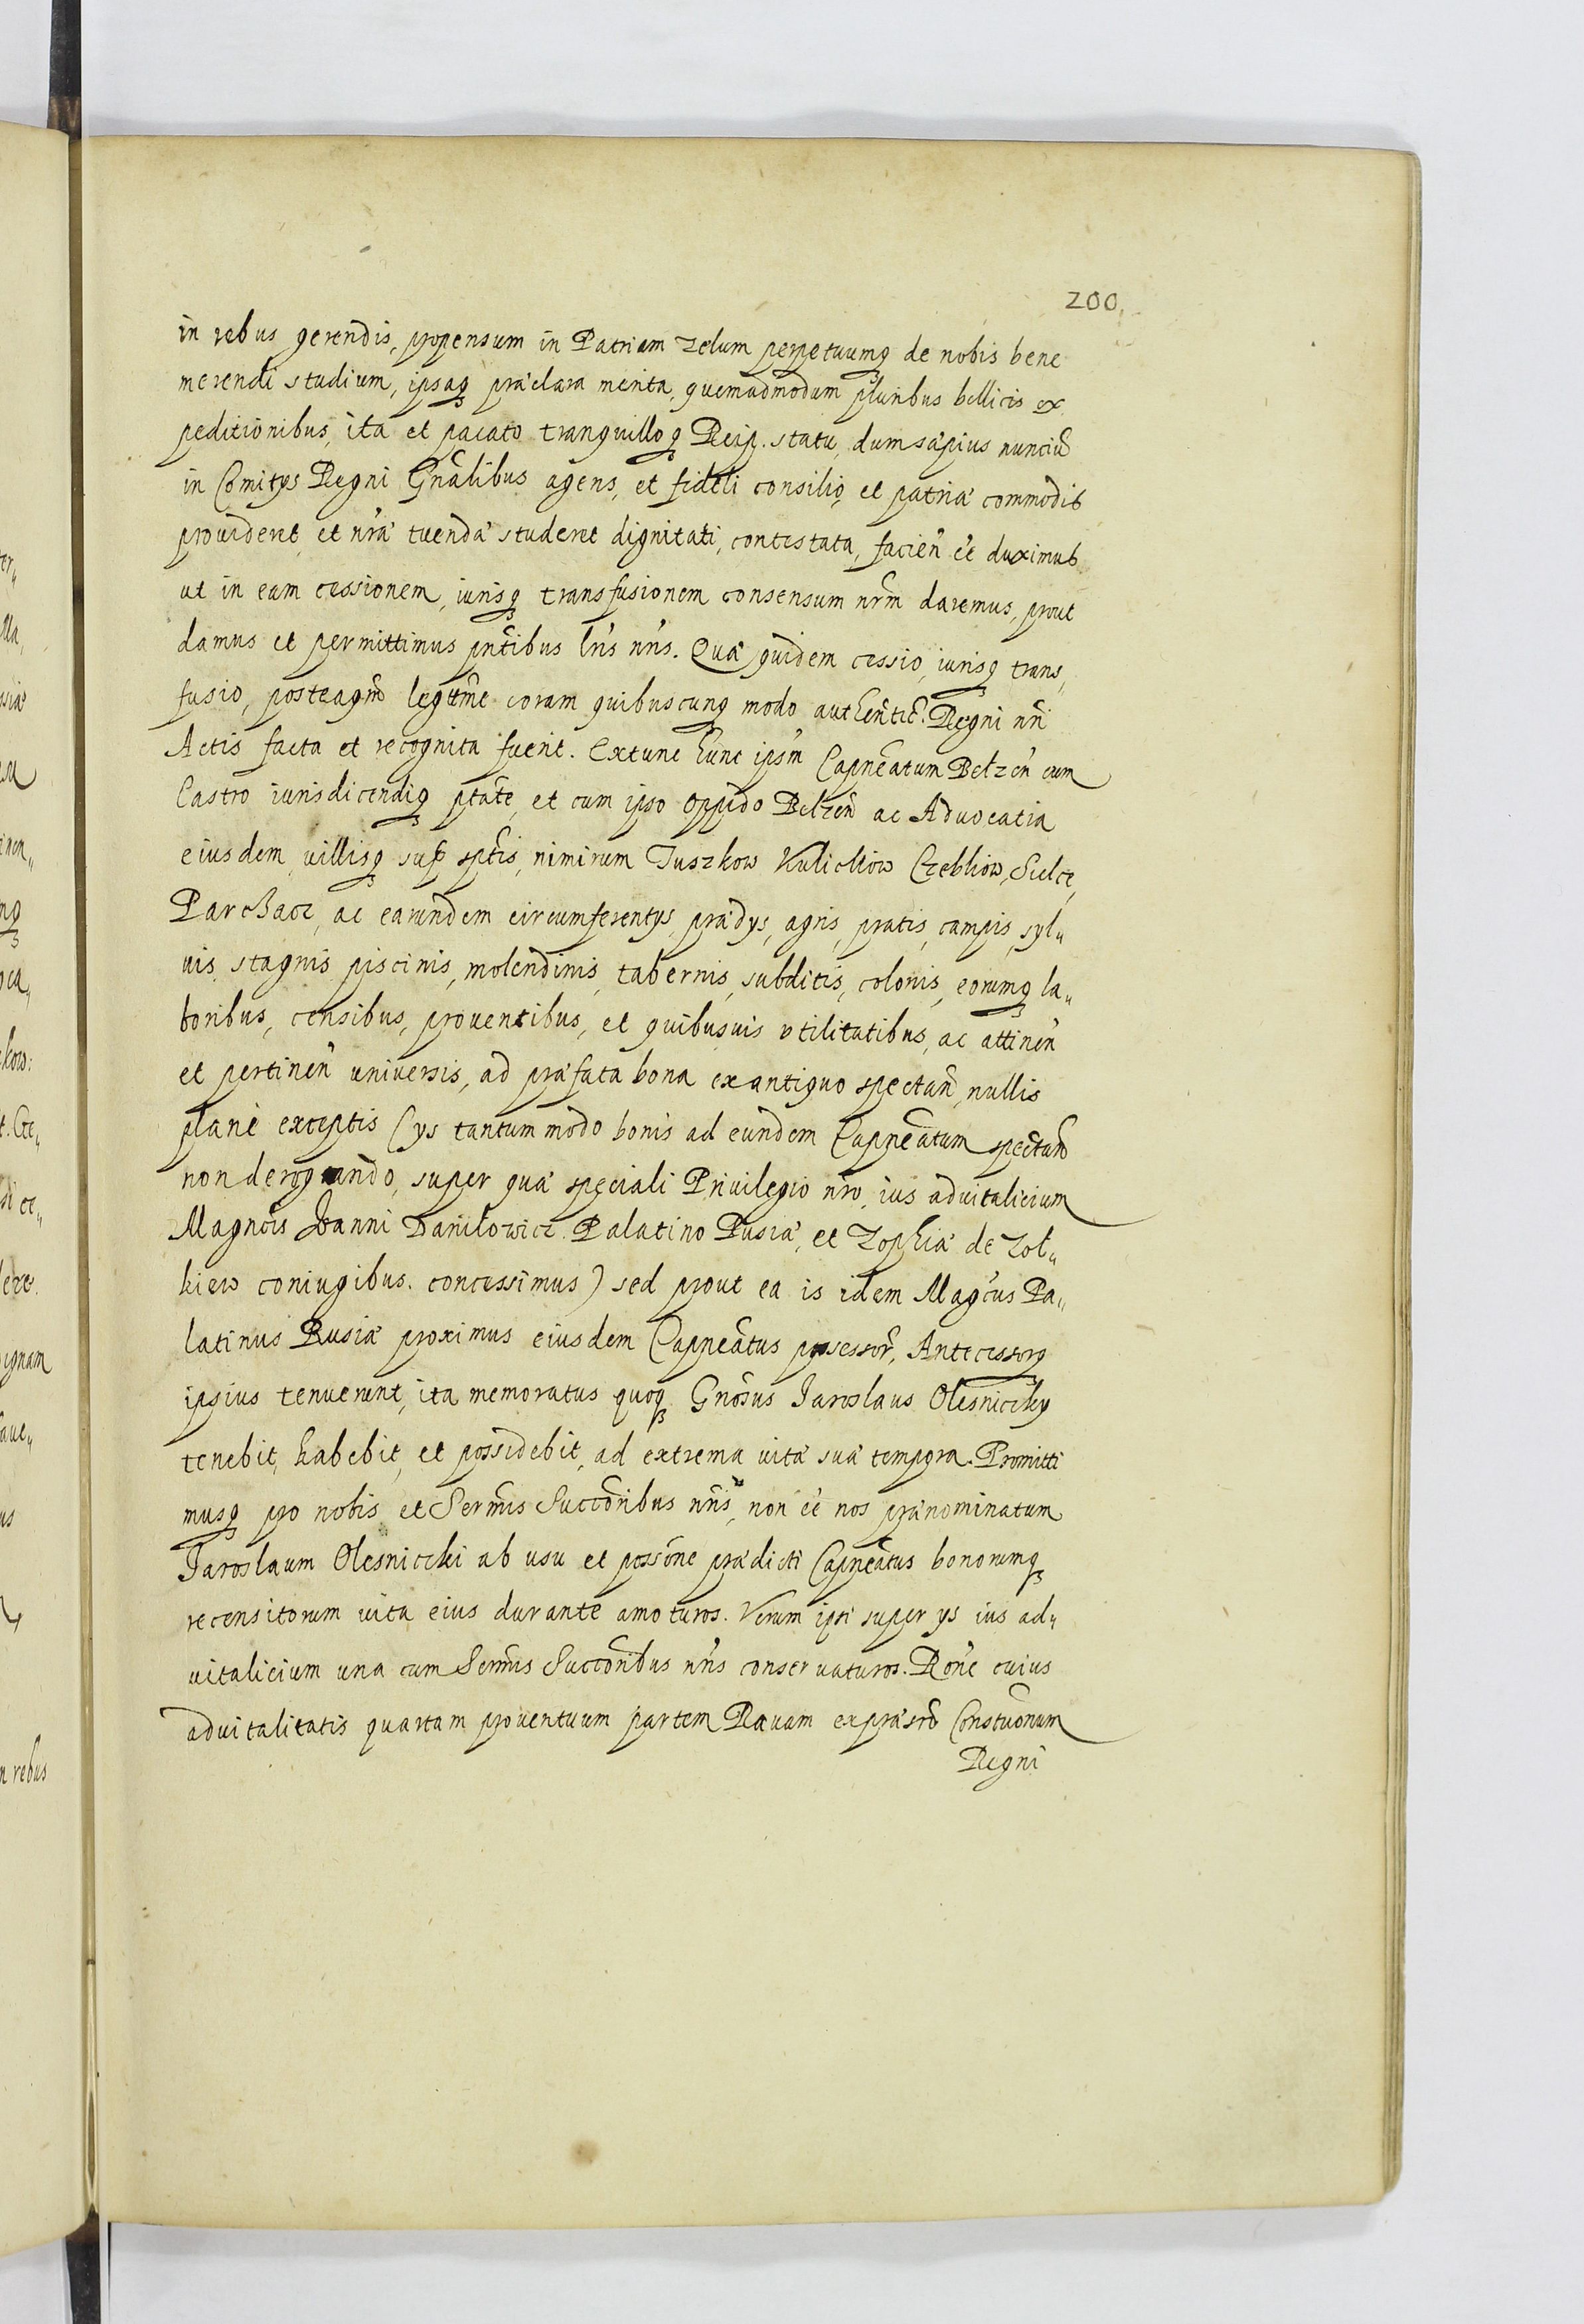 200.
in rebus gerendis, propensum in Patriam zelum perpetuumq₃ de nobis bene
merendi studium, ipsaq₃ præclara merita, quemadmodum pluribus bellicis ex
peditionibus, ita et pacato tranquilloq₃ Reip. statu, dum sæpius nunciũ
in Comitys Regni Gñalibus agens, et fideli consilio, et patriæ commodis
prouideret, et nr̃æ tuendæ studeret dignitati, contestata, facieñ eẽ duximus
ut in eam cessionem, iurisq₃ transfusionem consensum nrm̃ daremus, prout
damus et permittimus pñtibus lr̃is nr̃is. Quæ quidem cessio, iurisq₃ trans„
fusio, posteaqm̃ legitime coram quibuscunq₃ modo authentic̃. Regni nr̃i
Actis facta et recognita fuerit. Extunc hunc ipsm̃ Capneãtum Belzeñ cum
Castro iurisdicendiq₃ ptãte, et cum ipso oppido Belzeñ ac Aduocatia
eiusdem, villisq₃ sup sptis, nimirum Tuszkow Kulicżkow Czebliow, Sielce,
Parchacz, ac earundem circumferentys, prædys, agris, pratis, campis, syl„
uis, stagnis, piscinis, molendinis, tabernis, subditis, colonis, eorumq₃ la„
boribus, censibus, prouentibus, et quibusuis vtilitatibus, ac attineñ
et pertineñ uniuersis, ad præfata bona exantiquo spectañ, nullis
planè exceptis (ys tantummodo bonis ad eundem Capneãtum spectañ
non derogando, super quæ speciali Priuilegio nr̃o, ius aduitalicium
Magncis Joanni Daniłowicz Palatino Rusiæ, et Zophiæ de Zoł„
kiew coniugibus. concessimus) sed prout ea is idem Magcus Pa„
latinus Rusiæ proximus eiusdem Capneãtus possessor, Antecessorq₃
ipsius tenuerunt, ita memoratus quoq₃ Gnosus Jaroslaus Olesniczky
tenebit, habebit, et possidebit, ad extrema vitæ suæ tempora. Promitti
musq₃ pro nobis et Sermis Succoribus nr̃is, non eẽ nos prænominatum
Jaroslaum Olesniczki ab usu et possõne prædicti Capneãtus bonorumq₃
recensitorum vita eius durante amoturos. Verum ipsi super ys ius ad„
vitalicium una cum Sermis Succoribus nr̃is conseruaturos. Rõne cuius
aduitalitatis quartam prouentuum partem Rauam expræscro Constuonum
Regni